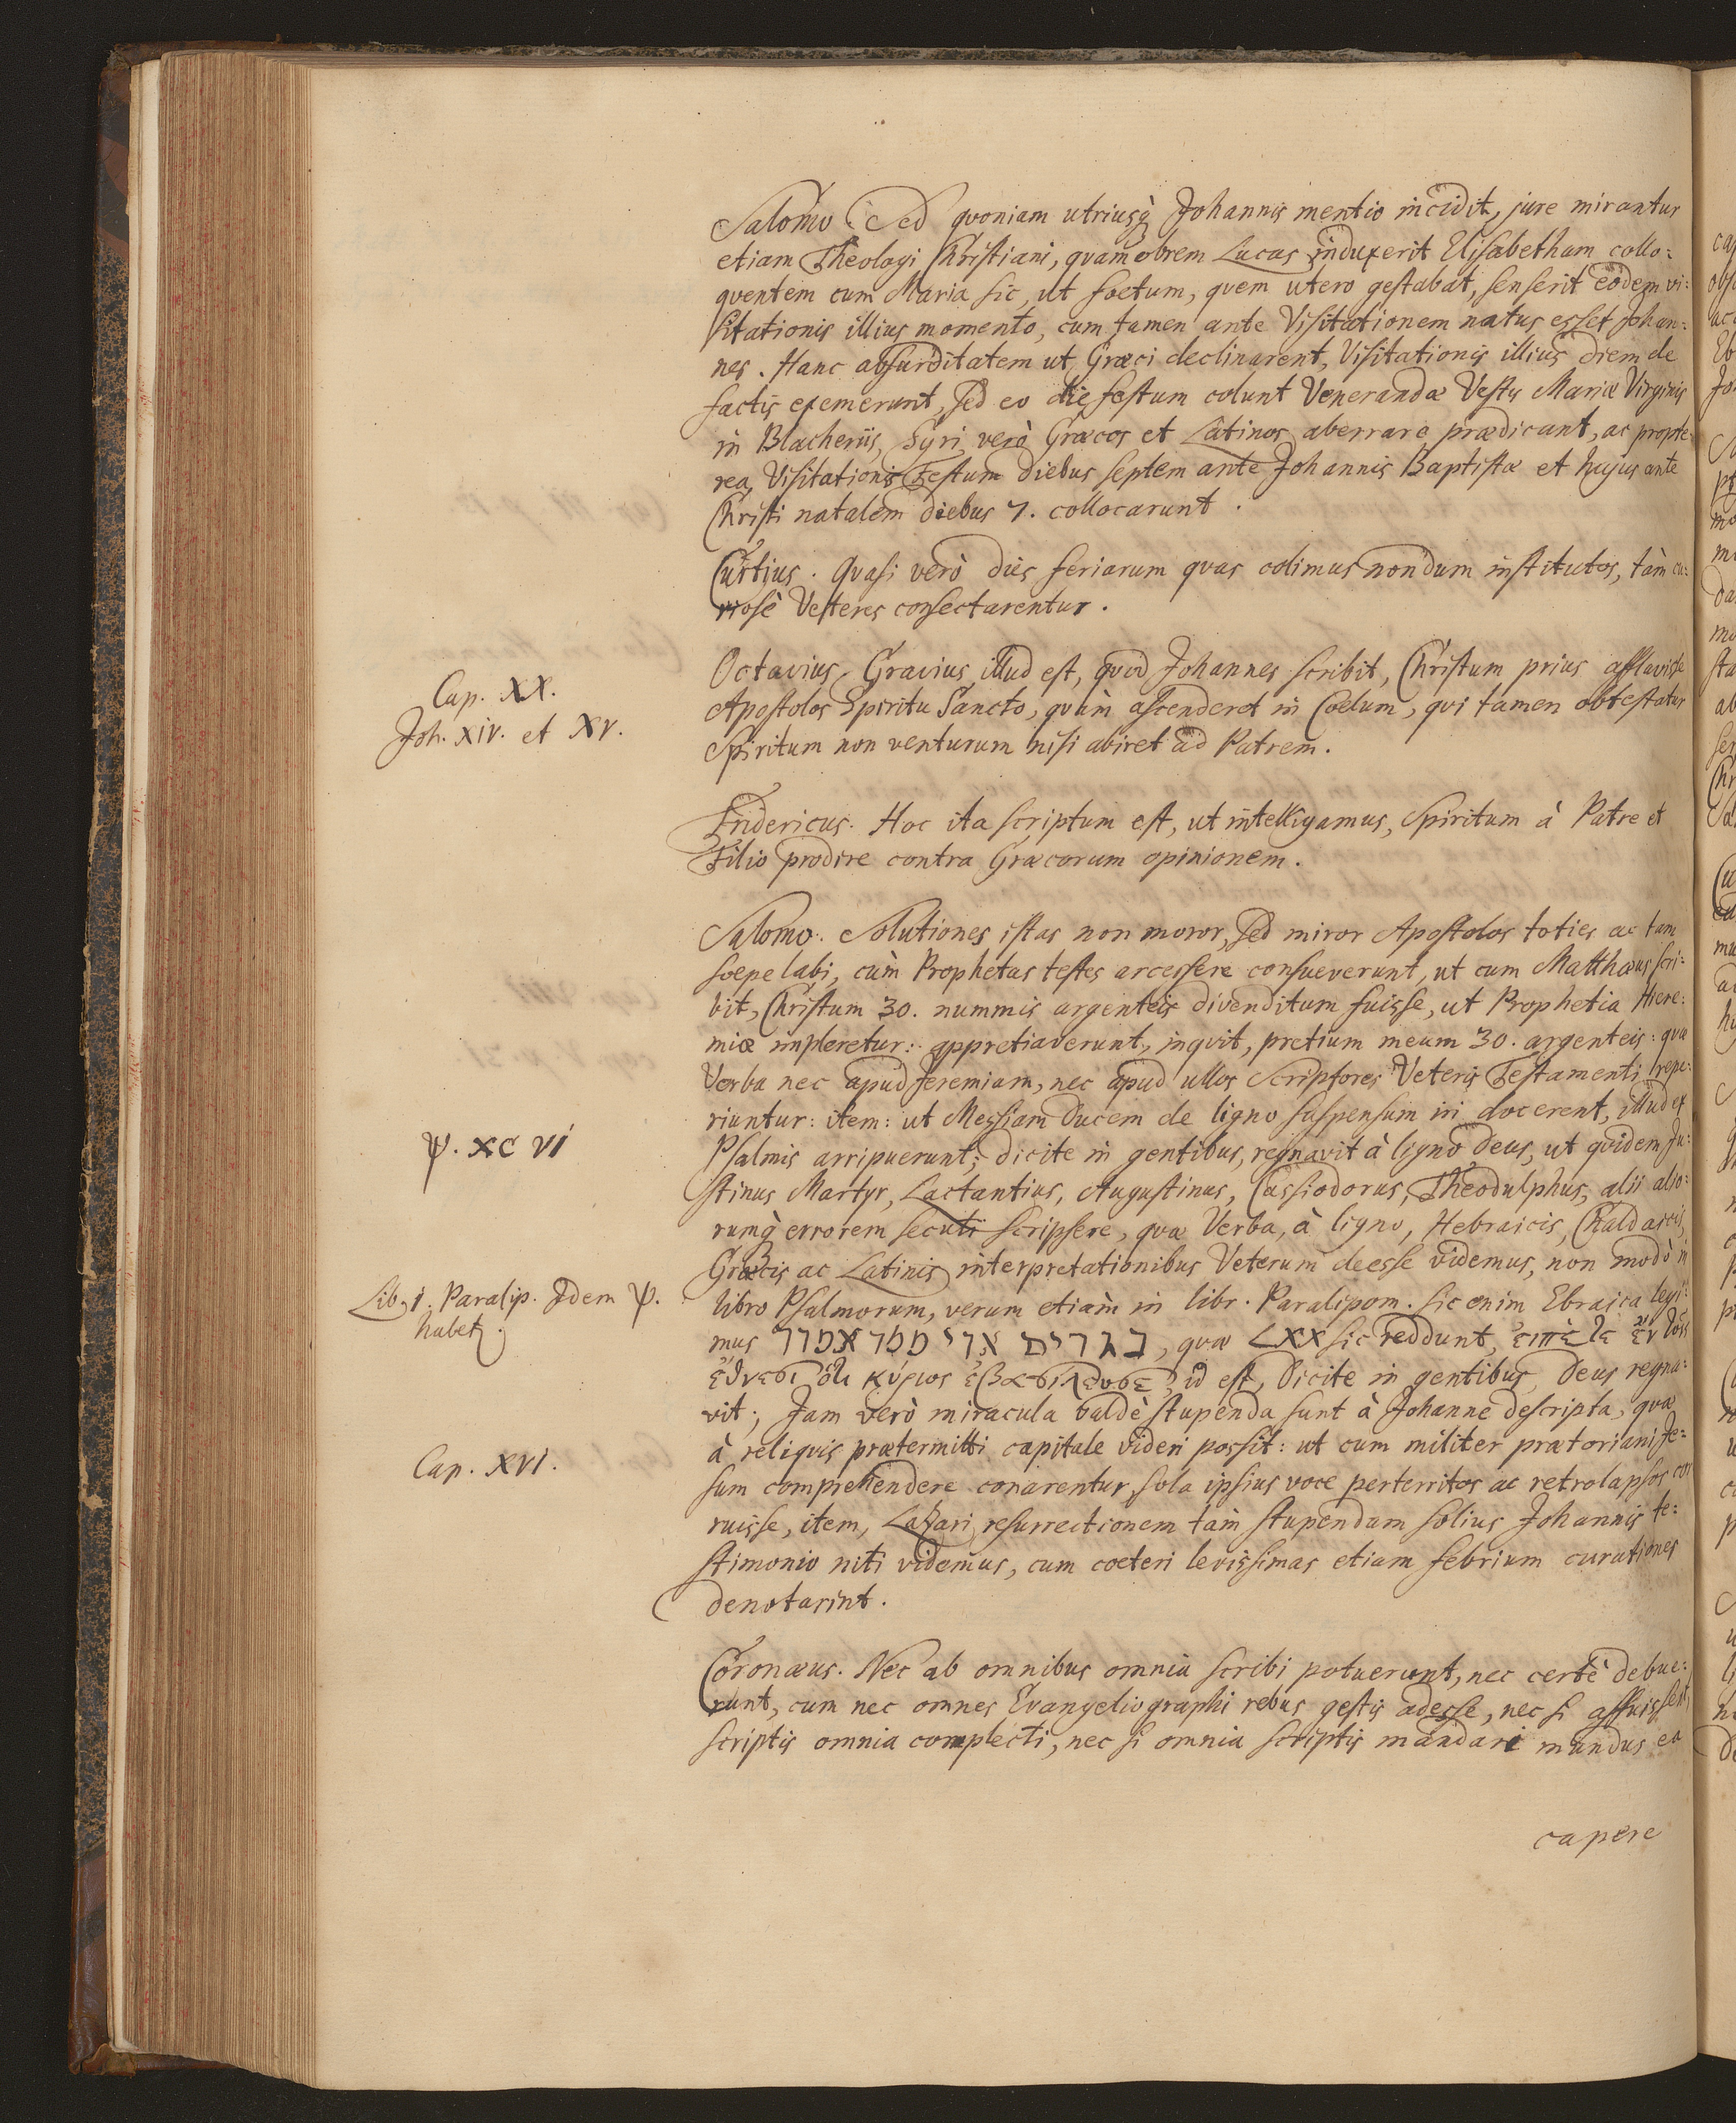 Salomo. Sed qvoniam utriusq̀ Johannis mentio incidit, jure mirantur
etiam Theologi Christiani, qvamobrem Lucas induxerit Elisabetham collo:
qventem cum Maria sic, ut foetum, qvem utero gestabat, senserit eodem vi:
sitationis illius momento, cum tamen ante Visitationem natus esset Johan:
nes. Hanc absurditatem ut Græci declinarent, Visitationis illius diem de
factis exemerunt, sed eo die festum colunt Venerandæ Vestis Mariæ Virginis
in Blacheriis, Syri verò Græcos et Latinos aberrare prædicant, ac propte:
rea Visitationis Festum diebus septem ante Johannis Baptistæ et hujus ante
Christi natalem diebus 7. collocarunt.
Curtius. Qvasi verò dies feriarum qvas colimus nondum institutos, tàm cu:
riosè Vesteres consectarentur.
Cap. XX.
Joh. XIV. et XV.
Octavius. Gravius illud est, qvod Johannes scribit, Christum prius afflavisse
Apostolos Spiritu Sancto, qvàm ascenderet in Coelum, qvi tamen obtestatur
Spiritum non venturum nisi abiret ad Patrem.
Fridericus. Hoc ita scriptum est, ut intelligamus, Spiritum à Patre et
Filio prodire contra Græcorum opinionem.
Salomo. Solutiones istas non moror, sed miror Apostolos toties ac tam
soepe labi, cùm Prophetas testes arcessere consueverunt, ut cum Matthæus scri:
bit, Christum 30. nummis argenteis divenditum fuisse, ut Prophetia Hiere:
miæ impleretur: appretiaverunt, inqvit, pretium meum 30. argenteis: qvæ
Verba nec apud Jeremiam, nec apud ullos Scriptores Veteris Testamenti repe:
riuntur: item: ut Messiam Ducem de ligno suspensum iri docerent, illud ex
ψ. XC VI
Psalmis arripuerunt; dicite in gentibus, regnavit à ligno Deus, ut qvidem Ju:
stinus Martyr, Lactantius, Augustinus, Cassiodorus, Theodulphus, alii alio:
rumq̀ errorem secuti scripsere, qvæ Verba, à ligno, Hebraicis, Chaldaicis,
Græcis ac Latinis interpretationibus Veterum deesse videmus, non modò in
Lib. 1. Paralip. Idem ψ.
habet.
libro Psalmorum, verum etiam in libr. Paralipom. sic enim Ebraica legi:
mus בגרים אדי ממד אמדד, qvæ LXX sic reddunt, ἐιπὲτε ἐν τοῖς
ἔθνεσι ὅτι κύριος ἐβασιλευσε, id est, Dicite in gentibus, Deus regna:
vit; Jam verò miracula valdè stupenda sunt à Johanne descripta, qvæ
Cap. XVI.
à reliqvis prætermitti capitale videri possit: ut cum militer prætoriani Je:
sum comprehendere conarentur, sola ipsius voce perterritos ac retrolapsos cor
ruisse, item, Lazari resurrectionem tam stupendam solius Johannis te:
stimonio niti videmus, cum coeteri levissimas etiam febrium curationes
denotarint.
Coronæus. Nec ab omnibus omnia scribi potuerunt, nec certè debue:
runt, cum nec omnes Evangeliographi rebus gestis adesse, nec si affuissent,
scriptis omnia complecti, nec si omnia scriptis mandari mundus ea
capere